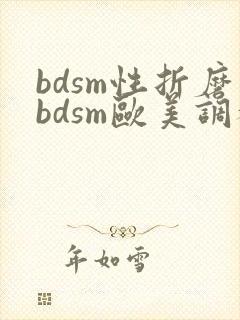 bdsm性折磨
bdsm歐美調
年如雪